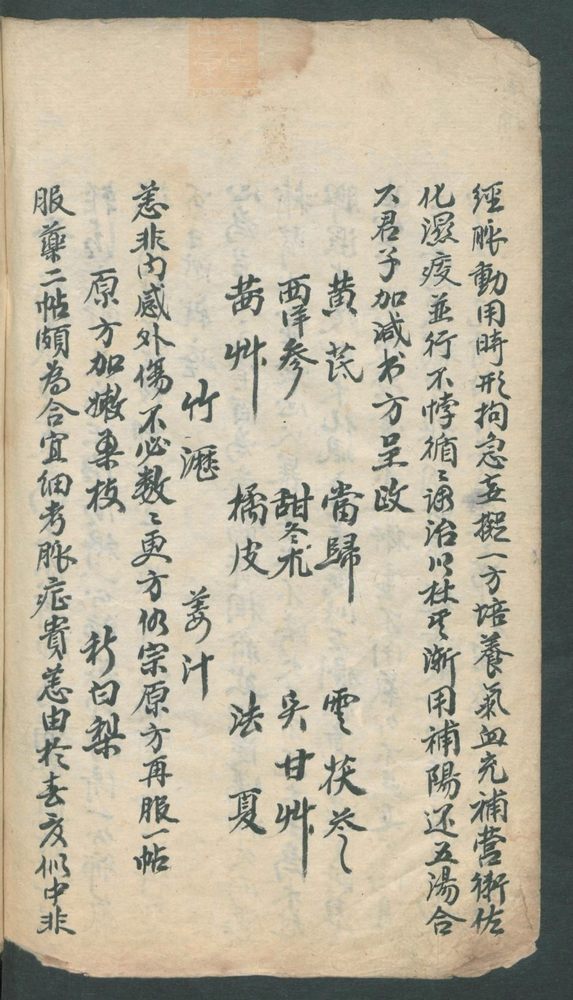 經脉動用時形拘急立擬一方培養氣血充補營衛佐
化濕痰並行不悖循〻調治以杜其漸用補陽还五湯合
六君子加減书方呈政
黄芪 當歸 雲茯苓
西洋参 甜冬朮 炙甘艸
茜艸 橘皮 法夏
竹瀝 姜汁
恙非內感外傷不必数〻更方仍宗原方再服一帖
原方加嫩桑枝 秋白梨
服藥二帖頗為合宜細考脉症貴恙由於去夜似中非